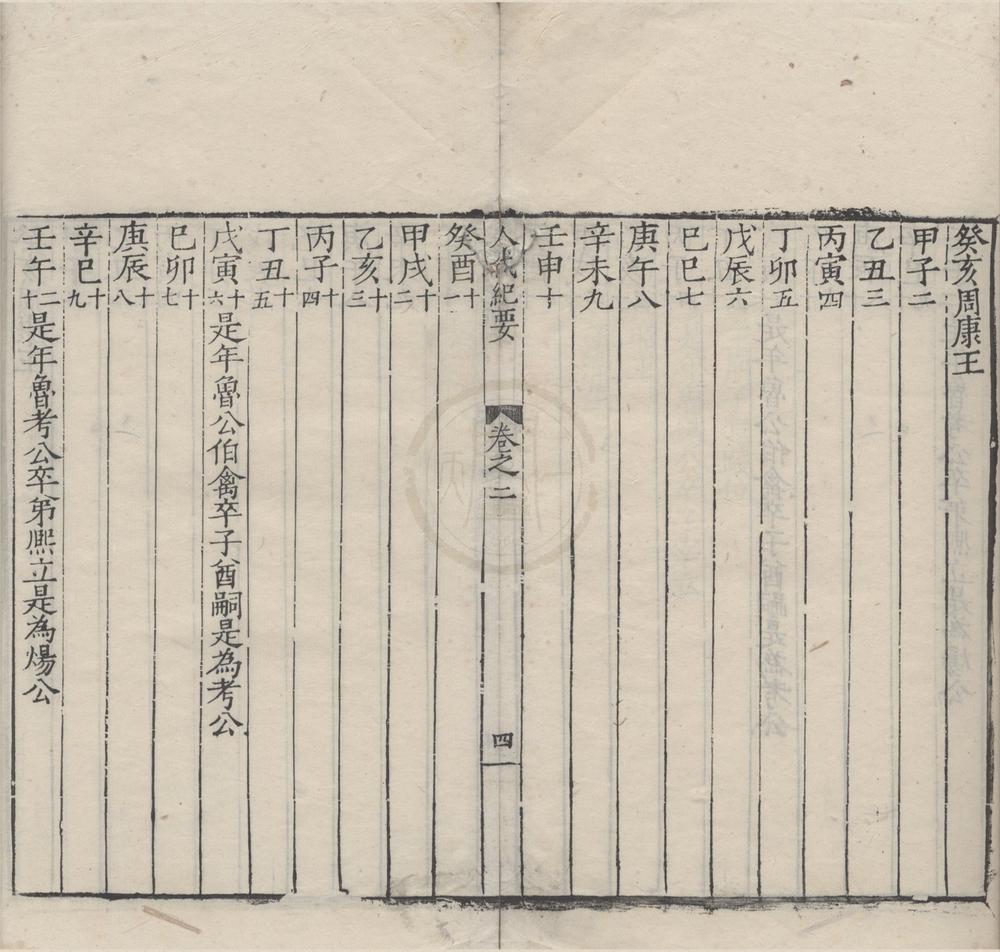 癸亥周康王
甲子二
乙丑三
丙寅四
丁卯五
戊辰六
己巳七
庚午八
辛未九
壬申十
人代紀要
卷之二
四
癸酉十一
甲戌十二
乙亥十三
丙子十四
丁丑十五
戊寅十六是年魯公伯禽卒子酋嗣是為考公
巳卯十七
庚辰十八
辛巳十九
壬午二十是年魯考公卒弟熈立是為煬公